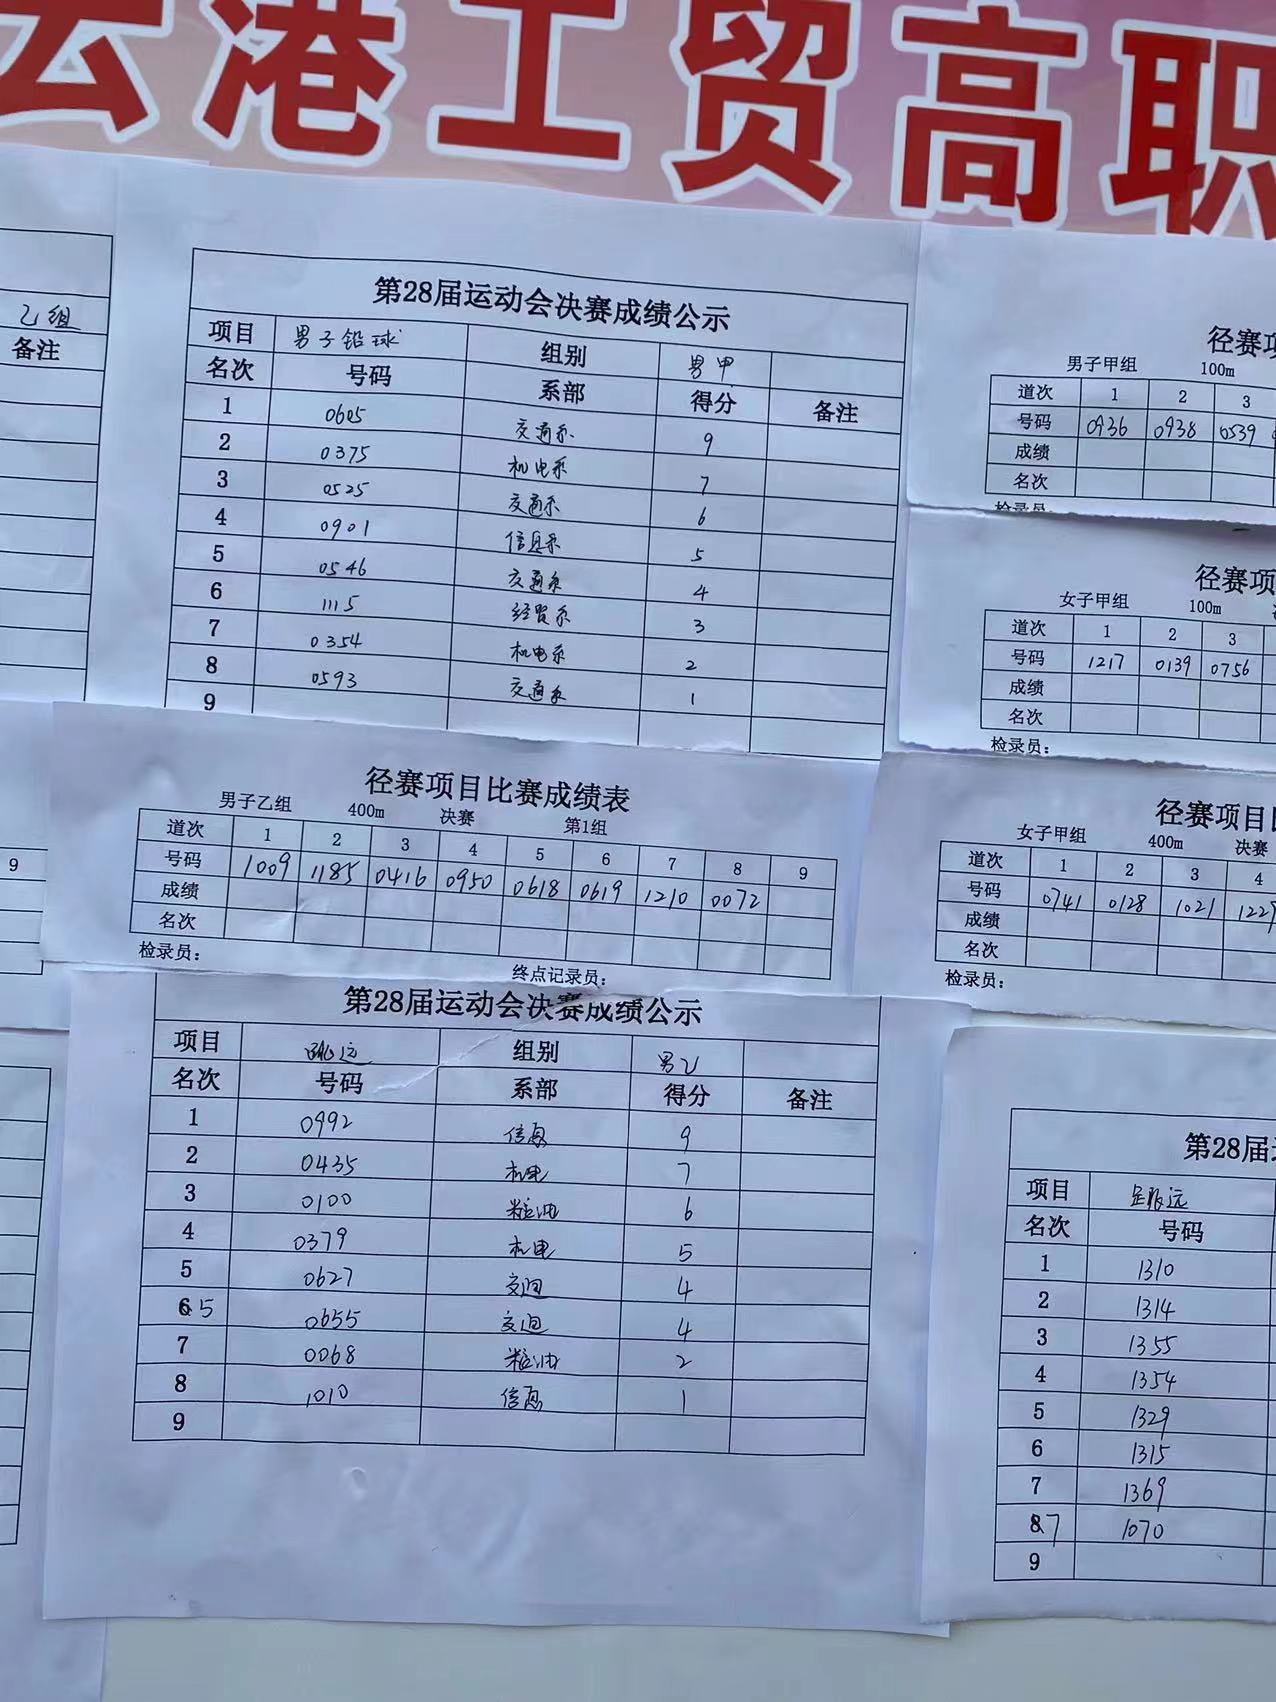 云港工贸高职
乙组
备注
9
第28届运动会决赛成绩公示
项目 男子铅球 组别 男甲
名次 号码 系部 得分 备注
1 0605 交通系 9
2 0375 机电系 7
3 0525 交通系 6
4 0901 信息系 5
5 0546 交通系 4
6 1115 经贸系 3
7 0354 机电系 2
8 0593 交通系 1
9
径赛项
男子甲组 100m
道次 1 2 3
号码 0936 0938 0539
成绩
名次
检录员
径赛项
女子甲组 100m
道次 1 2 3
号码 1217 0139 0756
成绩
名次
检录员:
径赛项目比赛成绩表
男子乙组 400m 决赛 第1组
道次 1 2 3 4 5 6 7 8 9
号码 1009 1185 0416 0950 0618 0619 1210 0072
成绩
名次
检录员: 终点记录员:
径赛项目
女子甲组 400m 决赛
道次 1 2 3 4
号码 0741 0128 1021 1229
成绩
名次
检录员:
第28届运动会决赛成绩公示
项目 跳远 组别 男乙
名次 号码 系部 得分 备注
1 0992 信息 9
2 0435 机电 7
3 0100 粮油 6
4 0379 机电 5
5 0627 交通 4
6 5 0655 交通 4
7 0068 粮油 2
8 1010 信息 1
9
第28届
项目 跳远
名次 号码
1 1310
2 1314
3 1355
4 1354
5 1329
6 1315
7 1369
8 7 1070
9